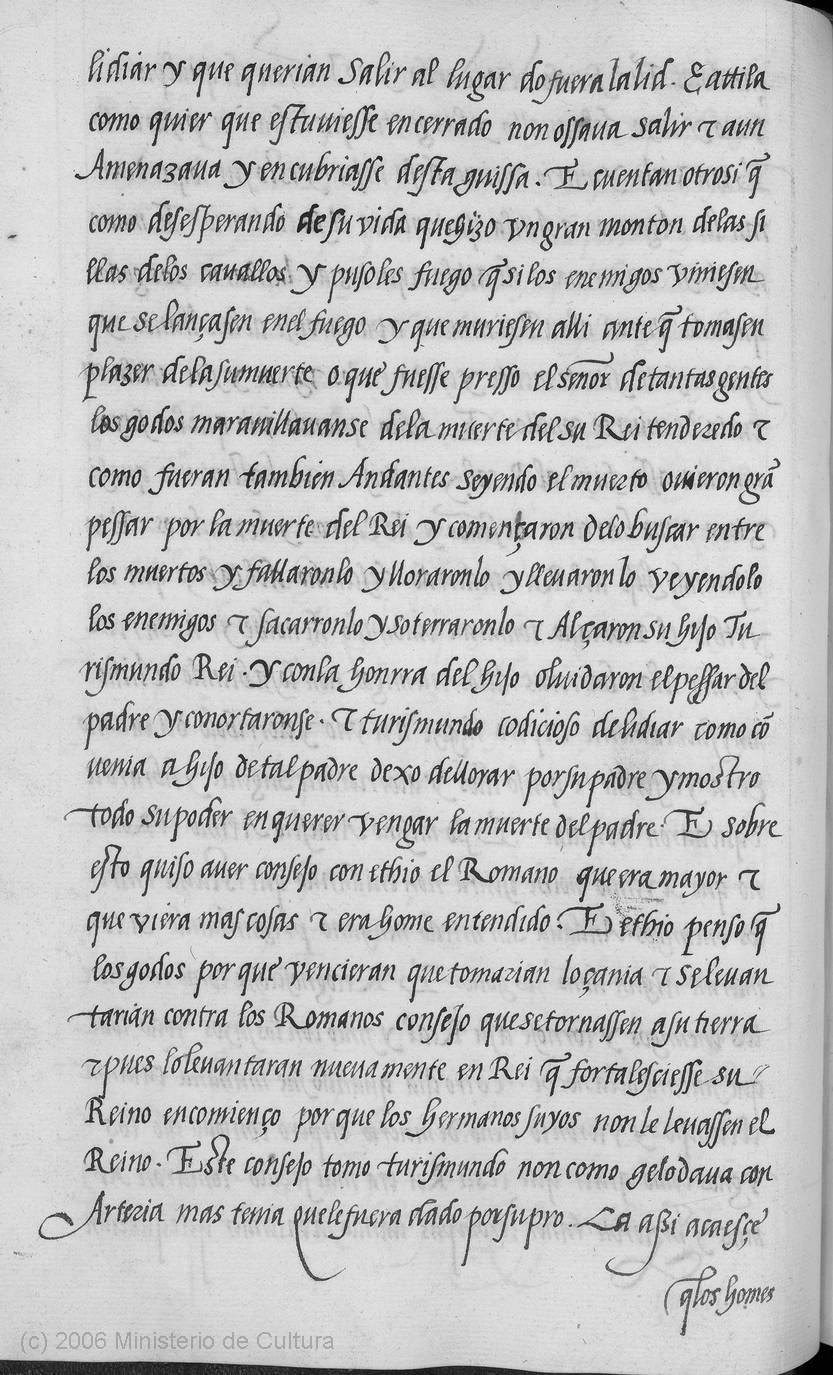 lidiar y que querian Salir al lugar do fuera la lid. E attila
como quier que estuviesse encerrado non ossava salir τ aun
Amenazava y encubriasse desta guissa. E cuentan otrosi q̃
como desesperando de su vida que hizo vn gran monton de las si
llas delos cavallos y pusoles fuego q̃ si los enemigos viniesen
que se lançasen en el fuego y que muriesen alli ante q̃ tomasen
plazer de la su muerte o que fuesse presso el señor de tantas gentes
los godos maravillavanse de la muerte del su Rei tenderedo τ
como fueran tambien Andantes seyendo el muerto ouieron grã
pessar por la muerte del Rei y començaron de lo buscar entre
los muertos y fallaronlo y lloraronlo y llevaronlo veyendolo
los enemigos τ sacarronlo y soterraronlo τ Alçaron su hijo Tu
rismundo Rei. y con la honrra del hijo olvidaron el pessar del
padre y conortaronse. τ turismundo codicioso de lidiar como cõ
venia a hijo de tal padre dexo de llorar por su padre y mostro
todo su poder en querer vengar la muerte del padre. E sobre
esto quiso aver consejo con ethio el Romano que era mayor τ
que viera mas cosas τ era home entendido. E ethio penso q̃
los godos porque vencieran que tomarian loçania τ se levan
tarian contra los Romanos consejo que se tornassen a su tierra
τ pues lo levantaran nuevamente en Rei q̃ fortalesciesse su
Reino en comienço porque los hermanos suyos non le levassen el
Reino. Este consejo tomo turismundo non como gelo dava con
Arteria mas tenia que le fuera dado por su pro. Ca aßi acaesçe
q̃ los homes
(c) 2006 Ministerio de Cultura